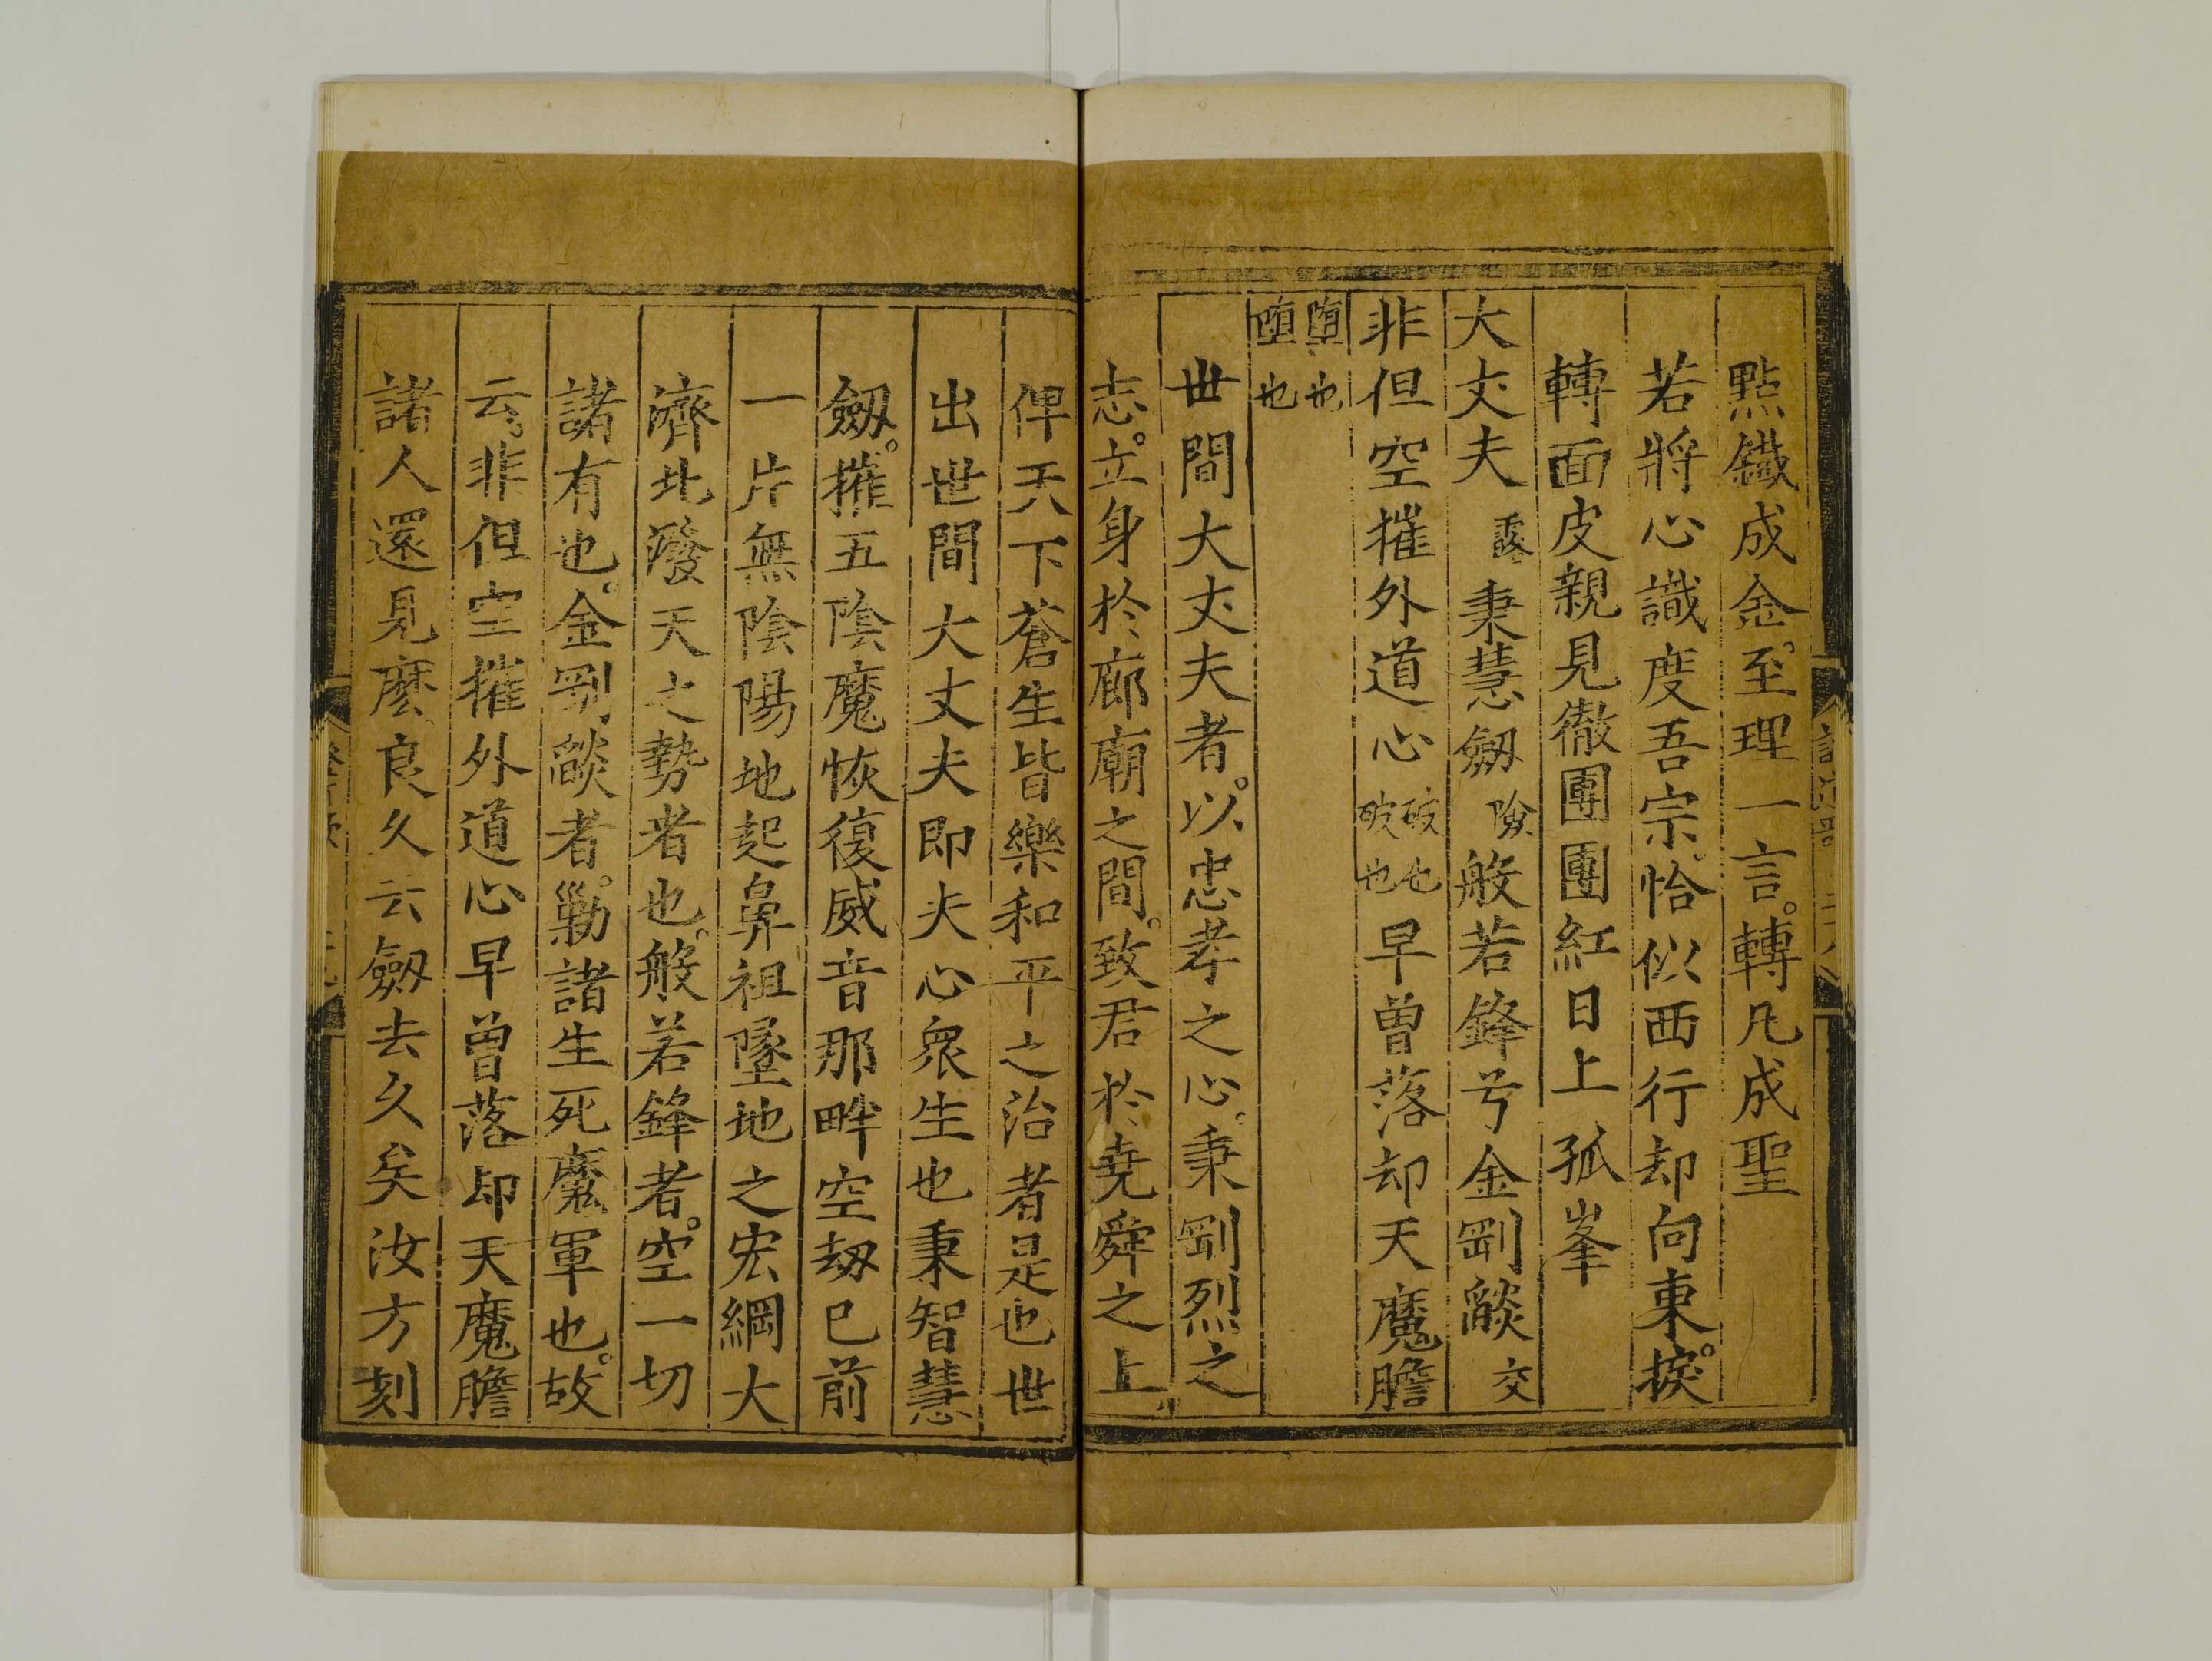 點鐵成金至理一言轉凡成聖
若將心識度吾宗恰似西行却向東捩
轉面皮親見徹團團紅日上孤峯
大丈夫 露 秉慧劒 險 般若鋒兮金剛燄 交
非但空摧外道心 破也破也 早曾落却天魔膽
墮也墮也
世間大丈夫者以忠孝之心秉剛烈之
志立身於廊廟之間致君於堯舜之上
俾天下蒼生皆樂和平之治者是也世
出世間大丈夫即夫心衆生也秉智慧
劒摧五陰魔恢復威音那畔空劫已前
一片無陰陽地起鼻祖墜地之宏綱大
濟北潑天之勢者也般若鋒者空一切
諸有也金剛燄者勦諸生死魔軍也故
云非但空摧外道心早曾落却天魔膽
諸人還見麽良久云劒去久矣汝方刻